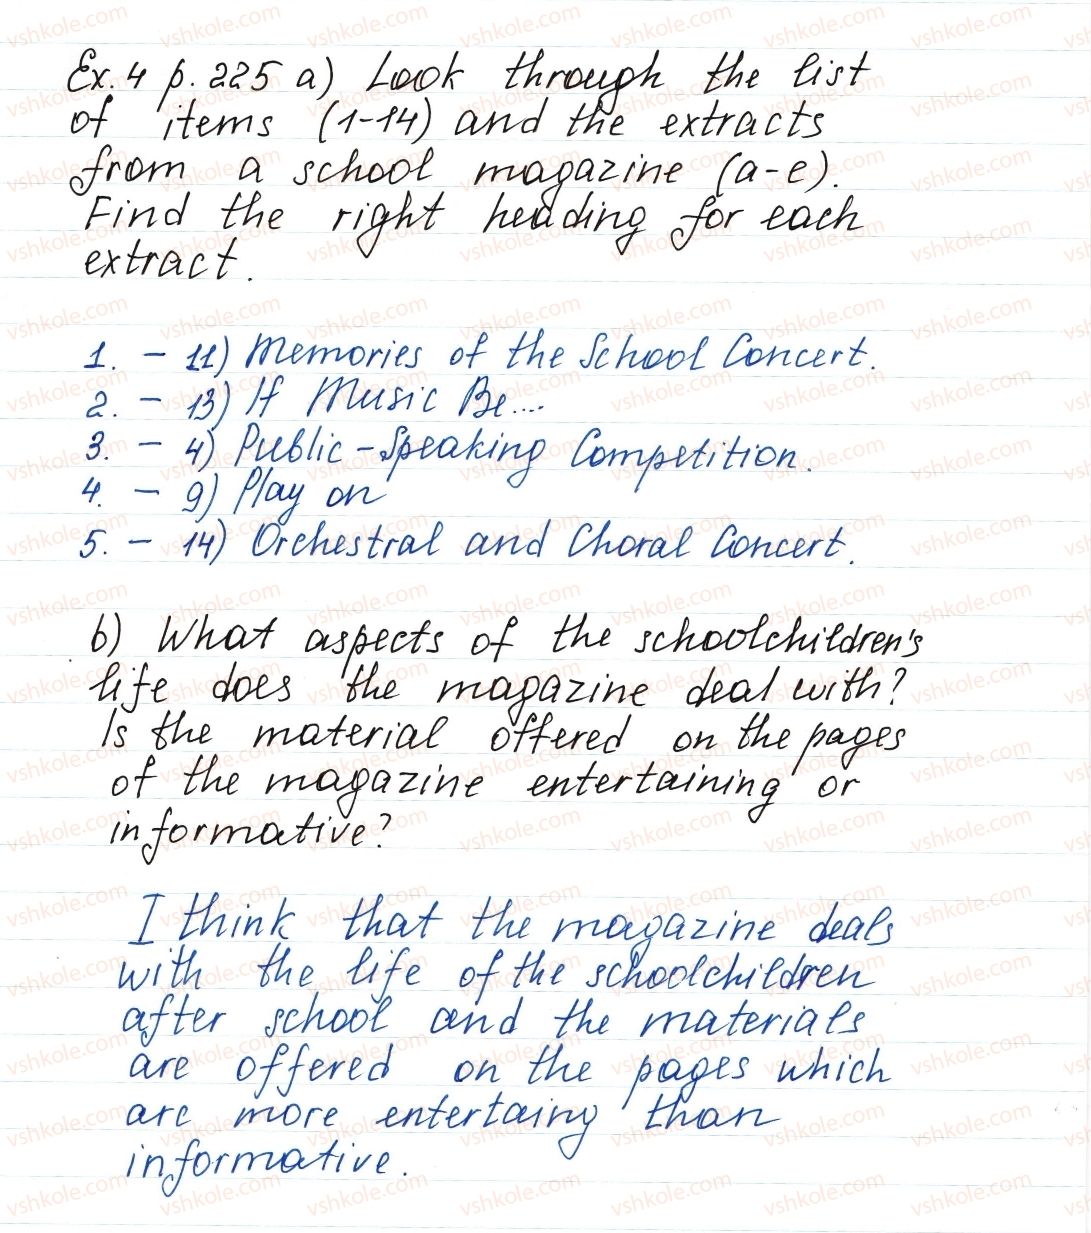 Ex. 4 p. 225 a) Look through the list
of items (1-14) and the extracts
from a school magazine (a-e).
Find the right heading for each
extract.
1. - 11) Memories of the School Concert.
2. - 13) If Music Be...
3. - 4) Public-Speaking Competition.
4. - 9) Play on
5. - 14) Orchestral and Choral Concert.
b) What aspects of the schoolchildren's
life does the magazine deal with?
Is the material offered on the pages
of the magazine entertaining or
informative?
I think that the magazine deals
with the life of the schoolchildren
after school and the materials
are offered on the pages which
are more entertaing than
informative.